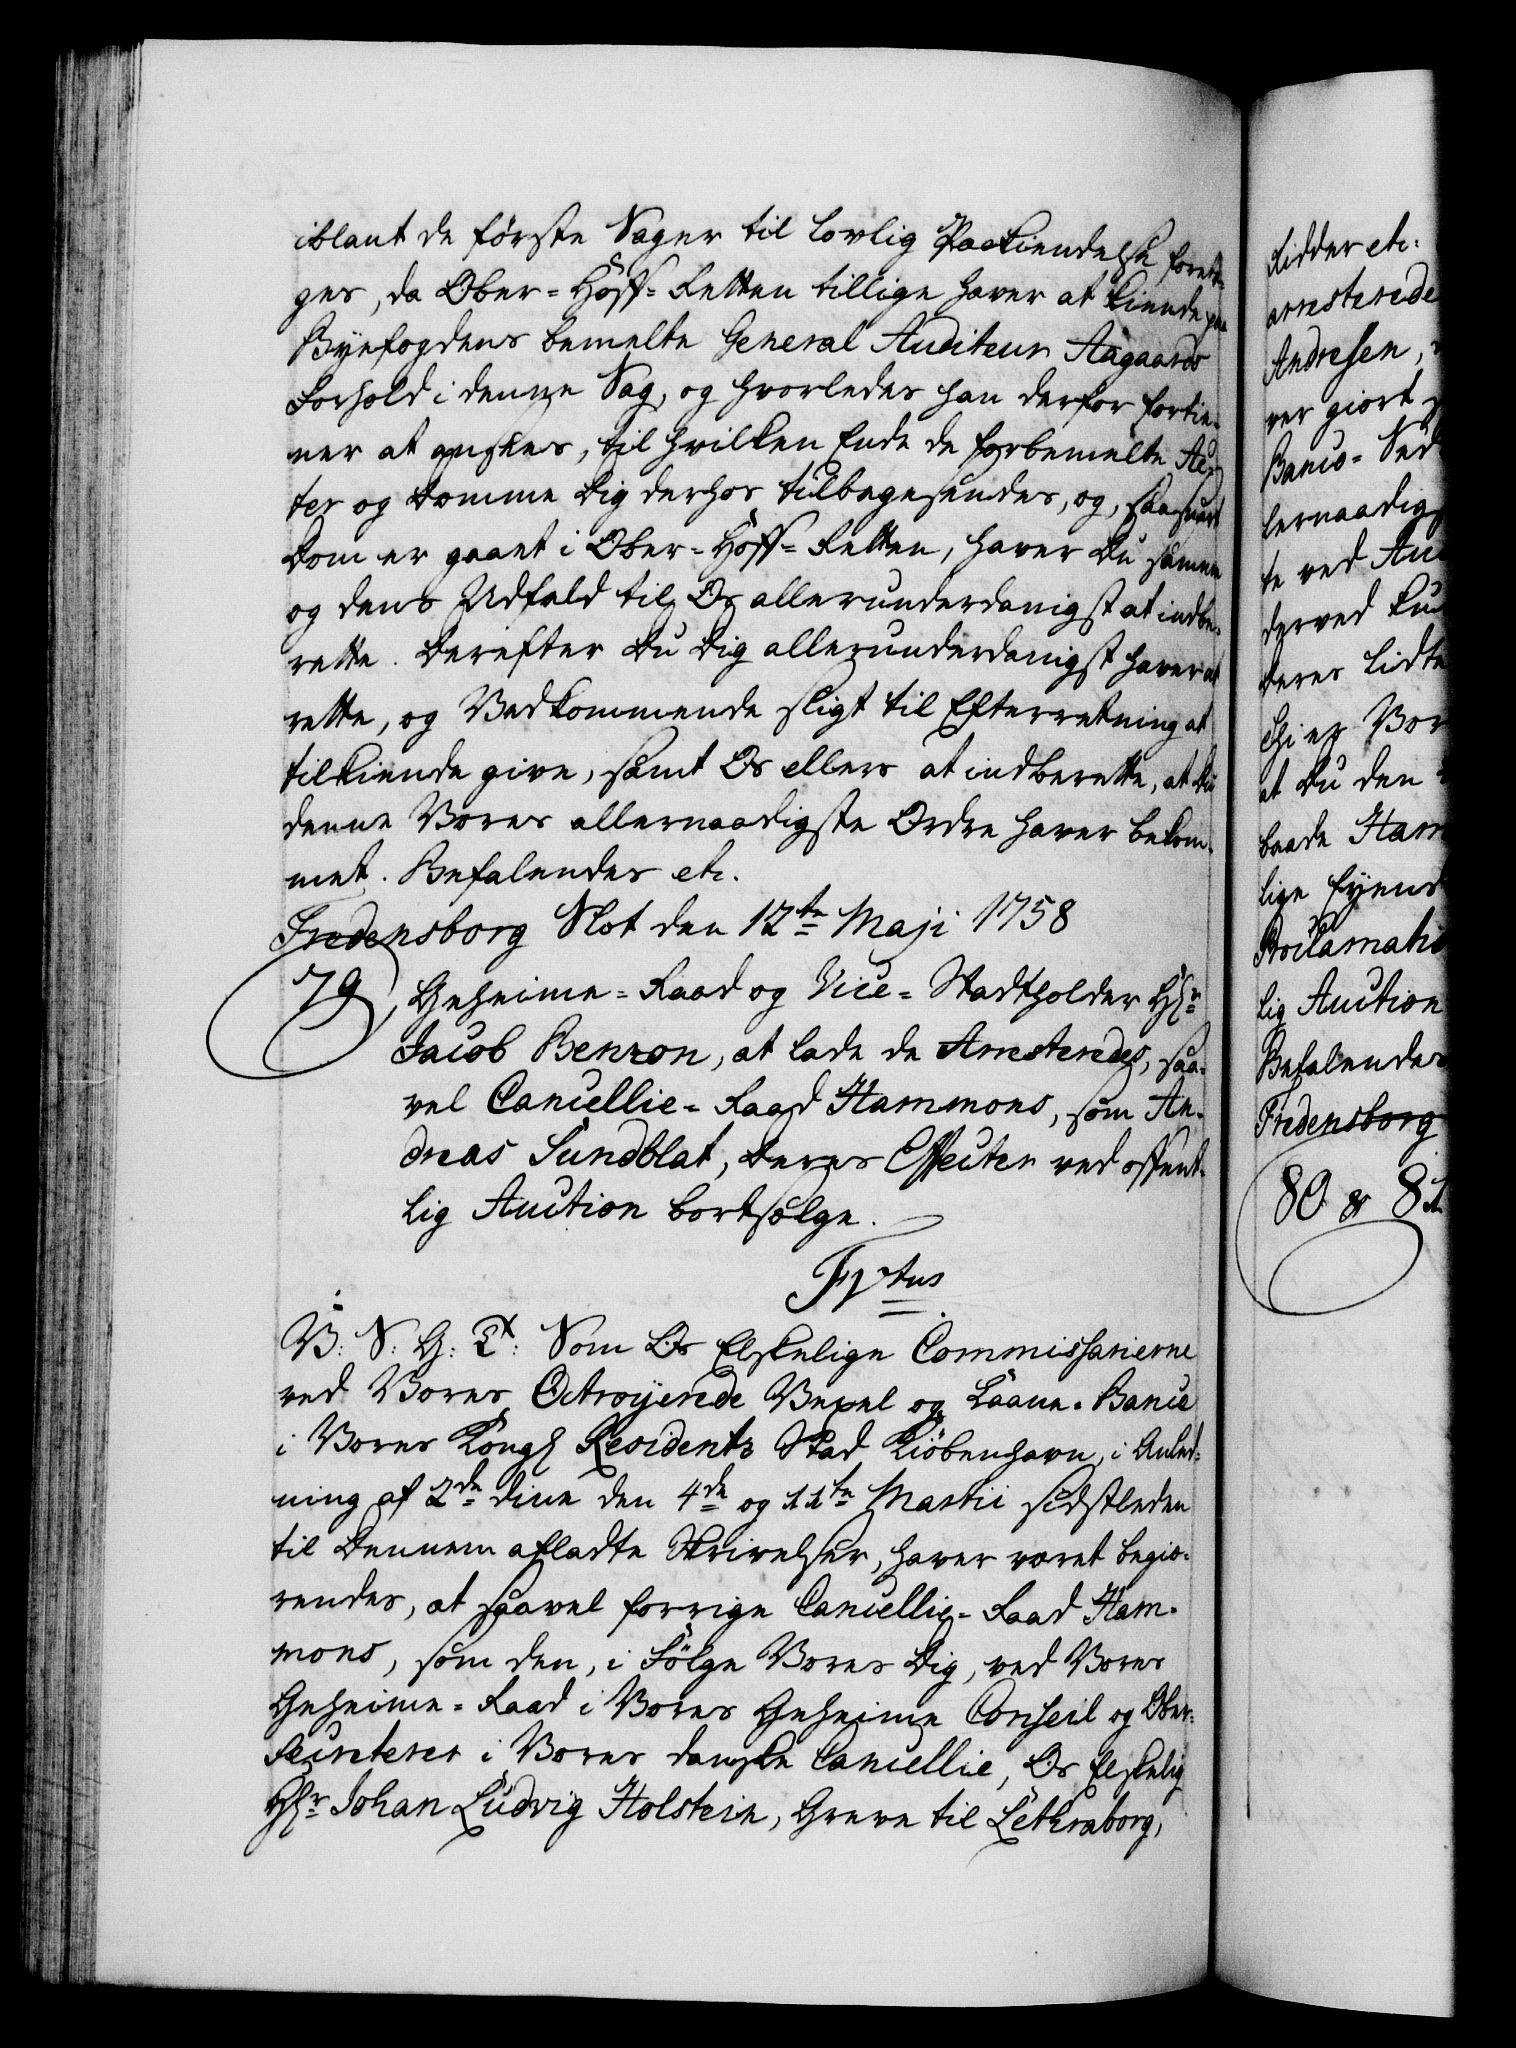 iblant de förste Sager til lovlig Paakiendelse foreta-
ges, da Ober-Hoff-Retten tillige haver at kiende paa
Byefogdens bemelte General Auditeur Aagaards
Forhold i denne Sag, og hvorledes han derfor fortie-
ner at ansees, til hvilken Ende de forbemelte Ac-
ter og Domme Dig derhos tilbagesendes, og, saasnart
Dom er gaaet i Ober-Hoff-Retten, haver Du samme
og dens Udfald til Os allerunderdanigst at indbe-
rette. Derefter Du Dig allerunderdanigst haver at
rette, og Vedkommende sligt til Efterretning at
tilkiende give, samt Os ellers at indberette, at Du
denne Vores allernaadigste Ordre haver bekom-
met. Befalendes etc.
Fredensborg Slot den 12te Maji 1758
79, Geheime-Raad og Vice-Stadtholder Hr
Jacob Benzon, at lade de Arresteredes, saa-
vel Cancellie-Raad Hammons, som An-
dreas Sundblat, Deres Effecter ved offent-
lig Auction bortsælge.
Fr 5tus
V: S: G: T: Som Os Elskelige Commissarierne
ved Vores Octroyerede Vexel og Laane-Banco
i Vores Kongl Residentz Stad Kiöbenhavn, i Anled-
ning af 2de dine den 4de og 11te Martii sidstleden
til Dennem afladte Skrivelser, haver været begie-
rendes, at saavel forrige Cancellie-Raad Ham-
mons, som den, i Fölge Vores Dig, ved Vores
Geheime-Raad i Vores Geheime Conseil og Ober-
Secreterer i Vores danske Cancellie, Os Elskelig
Hr Johan Ludvig Holstein, Greve til Lethraborg,
Ridder etc:
arresterede
Andresen,
ver giort
Banco-Sed
lernaadigst
te ved Auc
derved kun
deres lidte
Thi er Vor
at Du den
baade Ham
lige Eyend
Proclamatio
lig Auction
Befalendes
Fredensborg
80 & 81